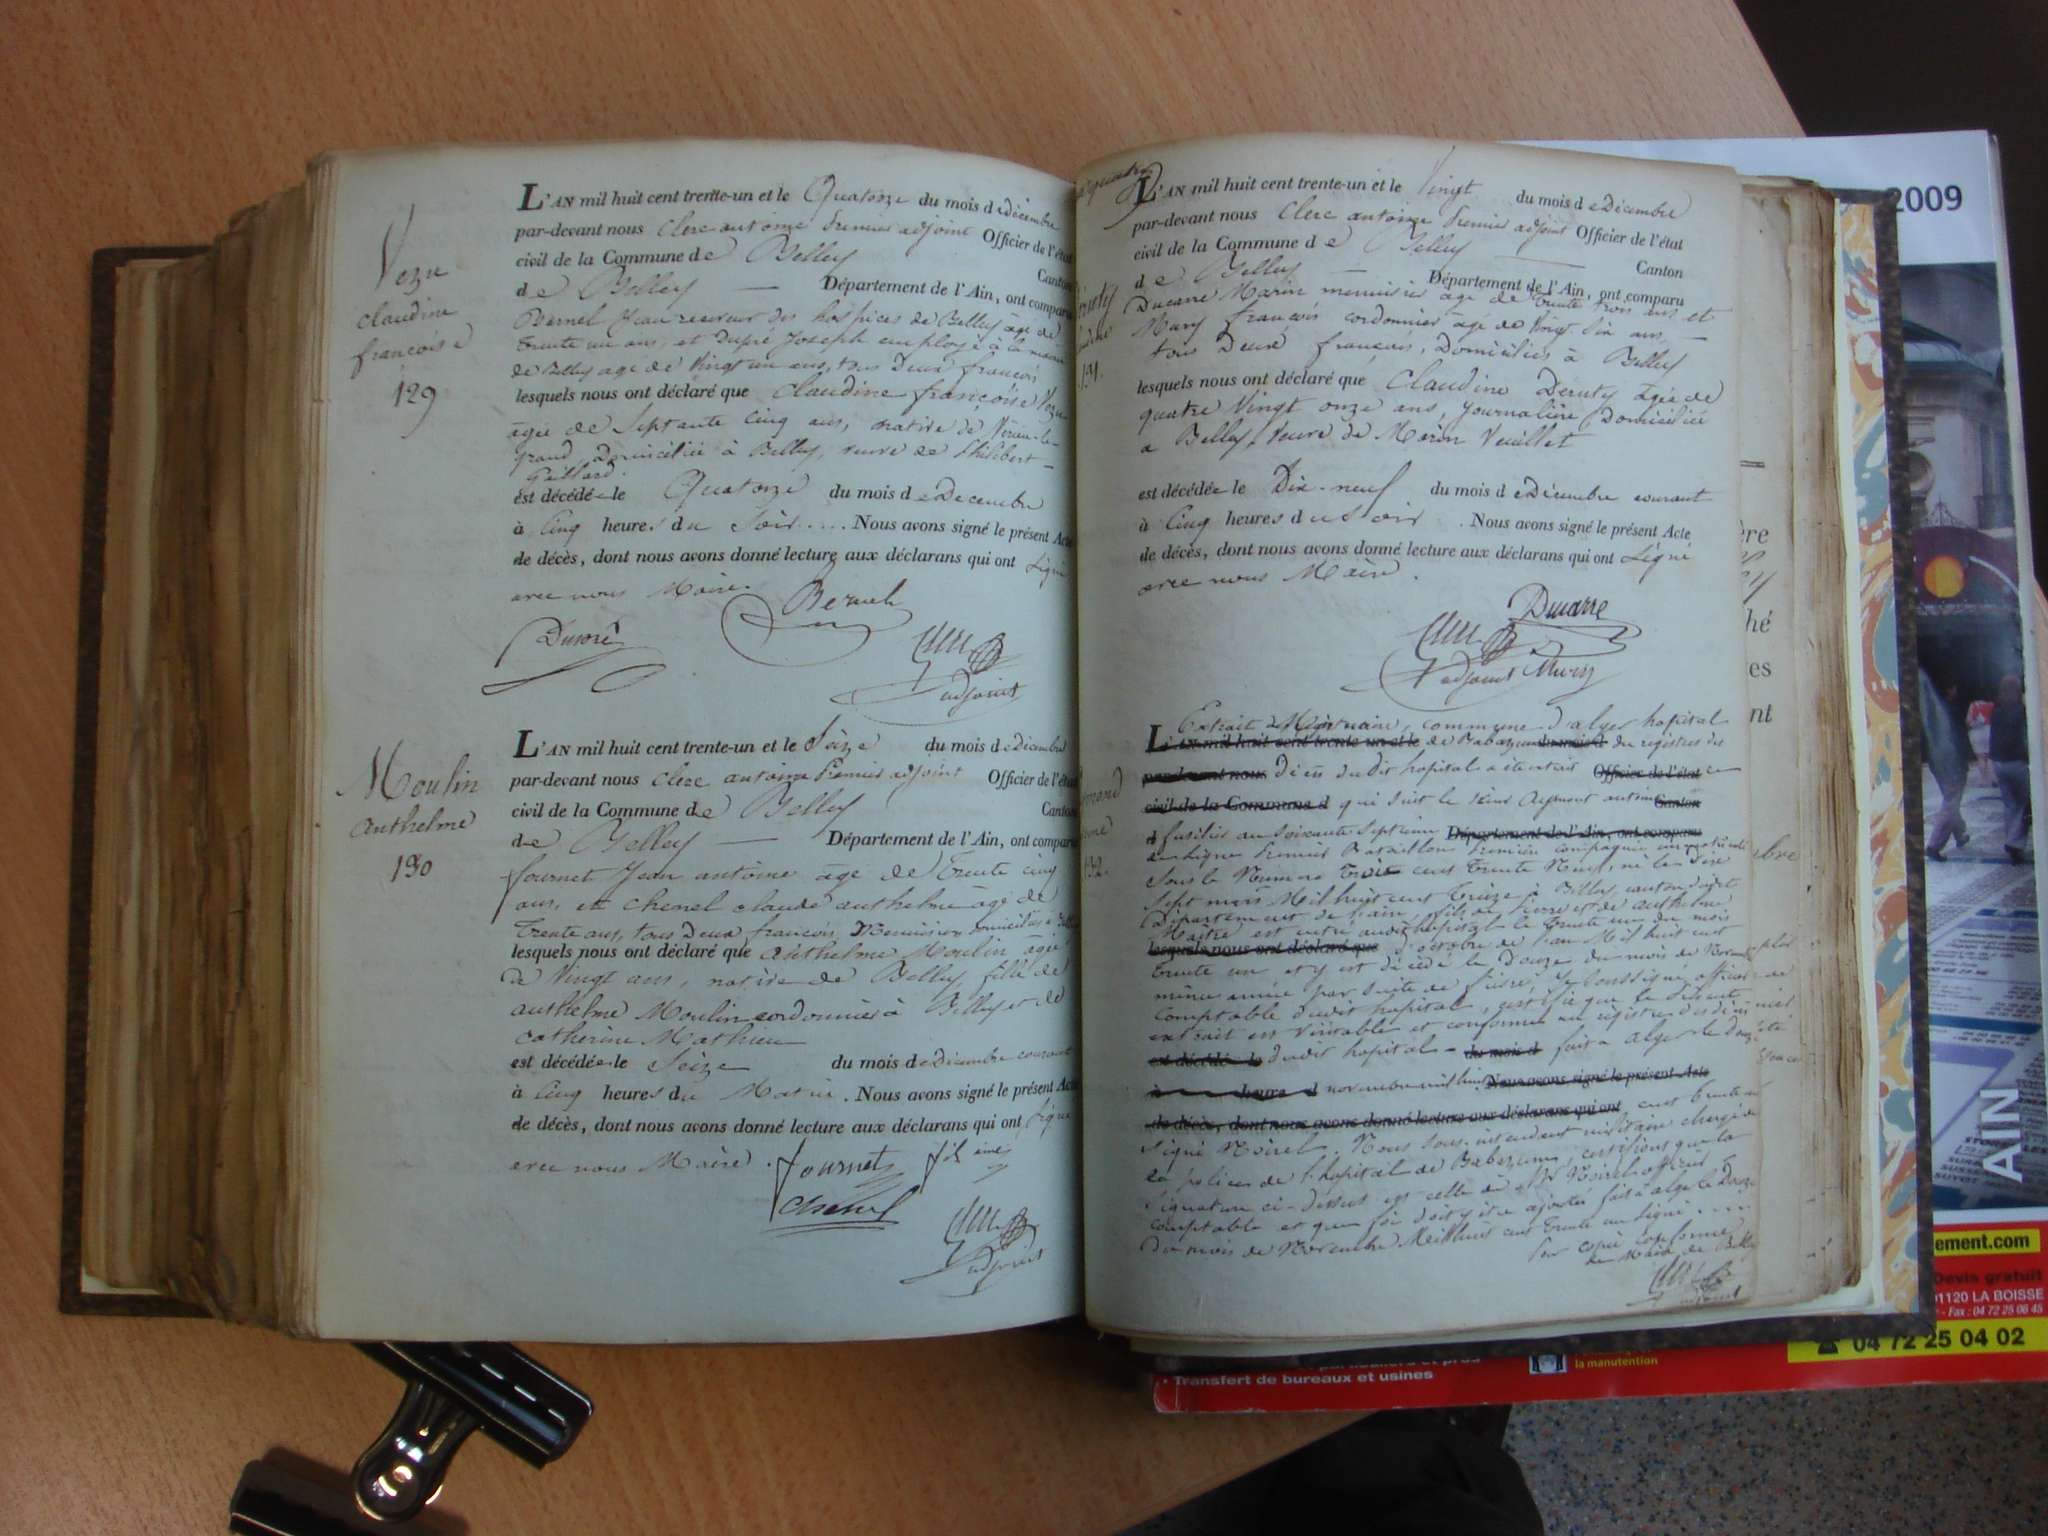 Vozu
claudine
francoise
129
L'AN mil huit cent trente-un et le Quatorze du mois de Décembre
par-devant nous Clerc antoine Premier adjoint Officier de l'état
civil de la Commune de Belley Canton
de Belley — Département de l'Ain, ont comparu
Bernel Jean receveur des hospices de Belley âgé de
trente un ans, et Dupré Joseph employé à la mairie
de Belley age de Vingt un ans, tous Deux francois
lesquels nous ont déclaré que Claudine françoise Vozu
agée de Septante Cinq ans, native de Virieu-le-
grand, Domiciliée à Belley, veuve de Philibert
est décédée le Quatorze du mois de Decembre
à Cinq heures du Soir .... Nous avons signé le présent Acte
de décès, dont nous avons donné lecture aux déclarans qui ont Signé
avec nous Maire.
Dupré
adjoint
Moulin
Anthelme
130
L'AN mil huit cent trente-un et le Seize du mois de Décembre
par-devant nous Clerc antoine Premier adjoint Officier de l'état
civil de la Commune de Belley Canton
de Belley — Département de l'Ain, ont comparu
fournet Jean antoine age de Trente cinq
ans, et Chenel claude anthelme âgé de
Trente ans, tous Deux francois, Menuisiers domiciliés à
lesquels nous ont déclaré que Anthelme Moulin agée
de Vingt ans, native de Belley, fille de
anthelme Moulin cordonnier à Belley et de
Catherine Mathieu
est décédée le Seize du mois de Décembre courant
à Cinq heures du Matin. Nous avons signé le présent Acte
de décès, dont nous avons donné lecture aux déclarans qui ont Signé
avec nous Maire.
fournet fils aîné
Chenel
adjoint
L'AN mil huit cent trente-un et le Vingt du mois de Décembre
par-devant nous Clerc antoine Premier adjoint Officier de l'état
civil de la Commune de Belley Canton
de Belley Département de l'Ain, ont comparu
Ducarre Marin menuisier age de Trente trois ans et
Mury francois cordonnier âgé de Vingt Six ans
tous Deux francois, Domiciliés à Belley
lesquels nous ont déclaré que Claudine Déruty agée de
quatre Vingt onze ans, Journalière Domiciliée
a Belley, veuve de Merin Veuillet
131.
est décédée le Dix-neuf du mois de Décembre courant
à Cinq heures du Soir . Nous avons signé le présent Acte
de décès, dont nous avons donné lecture aux déclarans qui ont Signé
avec nous Maire.
Ducarre
adjoint Mury
132.
Extrait Mortuaire, commune d'alger hopital
L'AN mil huit cent trente-un et le de Babazoun du mois d du registres des
par-devant nous Décès du dit hopital a été extrait Officier de l'état ce
civil de la Commune d qui suit le sieur Aymont antoine Canton
d fusilier au soixante Septième Département de l'Ain, ont comparu
de Ligne Premier Bataillon Première compagnie immatriculé
Sous le Numero Trois cent Trente Neuf, né le Dix
Sept mars Mil huit cent Treize à Belley, canton dudit
Département de l'ain, fils de Pierre et de anthelme
Maitre est entré audit hopital le Trente un du mois
lesquels nous ont déclaré que d'octobre de l'an Mil huit cent
Trente un et y est décédé le Douze du mois de Novembre
même année par suite de fièvre, Je Soussigné officier
comptable dudit hopital, certifie que le présent
extrait est Véritable et conforme au registre des décès
est décédé le dudit hopital - du mois d fait a alger le Douze
à heure d novembre mil huit Nous avons signé le présent Acte
de décès, dont nous avons donné lecture aux déclarans qui ont cent trente un
Signé Noirel. Nous Sous-intendant militaire chargé de
la police de l'hopital de Babazoun, certifions que la
Signature ci-dessus est celle de Mr Noirel officier
comptable et que foi doit y être ajoutée fait à alger le Douze
du mois de Novembre Mil huit cent Trente un Signé ....
Pour copie conforme
le Maire de Belley
adjoint
2009
AIN
ement.com
Devis gratuit
01120 LA BOISSE
- Fax : 04 72 25 06 45
04 72 25 04 02
la manutention
• Transfert de bureaux et usines